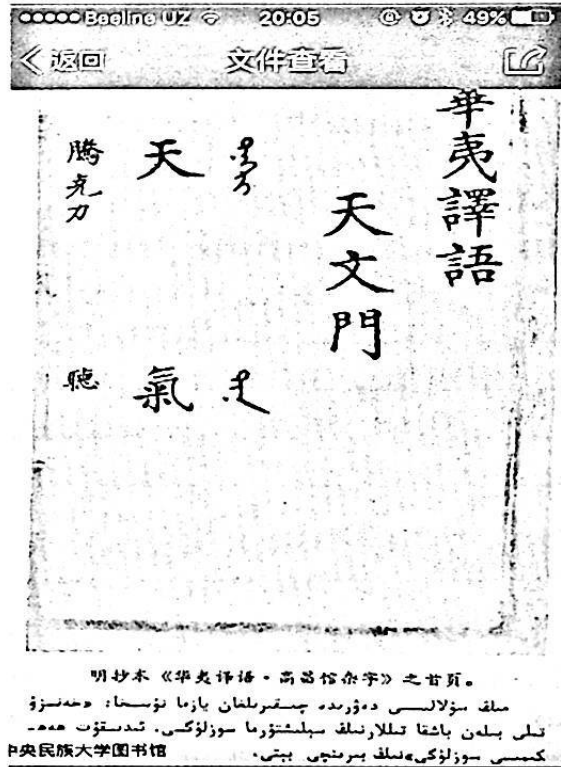 Beeline UZ 20:05 49%
返回 文件查看
華夷譯語
天文門
天
腾克力
氣
聴
明抄本《华夷译语·高昌馆杂字》之首页。
مىڭ سۇلالىسى دەۋرىدە چىقىرىلغان يازما نۇسخا: «خەنزۇ
تىلى بىلەن باشقا تىللارنىڭ سېلىشتۇرما سۆزلۈكى. ئىدىقۇت مەھ-
كىمىسى سۆزلۈكى»نىڭ بىرىنچى بېتى.
中央民族大学图书馆